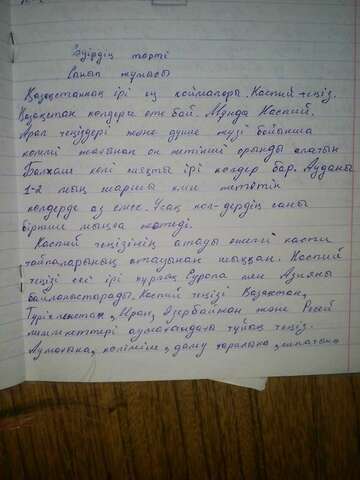 тәртi
Сапып жұмасы
Қазақстаннаң iрi су қоймалары. Каспий теңiз.
Қазақстан көлдерге өте бай. Мұнда Каспий.
Арал теңiздерi және дүние жүзi бойынша
көлемi жағынан он жетiншi орынды алатын
Балхаш көлi сияқты iрi көлдер бар. Ауданы
1-2 мың шаршы км жететiн
көлдерде аз емес. Ұсақ көл-дердiң саны
бiрнше мыңға жетедi.
Каспий теңiзiнiң атауы ежелгi каспи
тайпаларының атауынан шыққан. Каспий
теңiзi екi iрi құрлық Еуропа мен Азияны
байланыстарады. Каспий теңiзi Қазақстан,
Түрiкменстан, Иран, Әзербайжан және Ресей
мемлекеттерi аумағандағы тұйық теңiз.
Аумағына, көлемiне, даму тарапына, сипатына